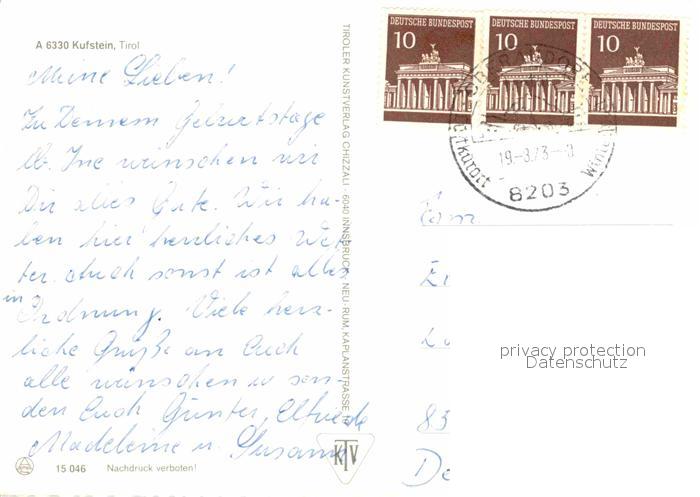 A 6330 Kufstein, Tirol
Meine Lieben!
Zu Deinem Geburtstage
lb. Ine wünschen wir
Dir alles Gute. Wir ha-
ben hier herrliches Wet-
ter. Auch sonst ist alles
in Ordnung. Viele herz-
liche Grüße an Euch
alle wünschen u. sen-
den Euch Günter, Elfriede
Madeleine u. Susanne
15 046 Nachdruck verboten!
TIROLER KUNSTVERLAG CHIZZALI · 6040 INNSBRUCK, NEU-RUM, KAPLANSTRASSE
KTV
DEUTSCHE BUNDESPOST
10
DEUTSCHE BUNDESPOST
10
DEUTSCHE BUNDESPOST
10
OBERAUDORF
Luftkurort
19.-3.73-
8203
83
privacy protection
Datenschutz